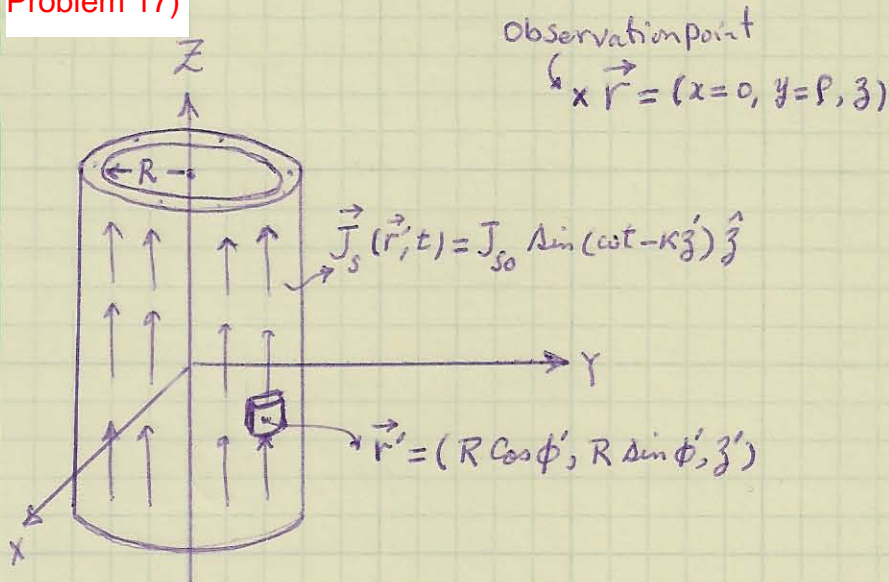 Problem 17)
Observation point
× r⃗ = (x=0, y=ρ, z)
Z
R
J⃗ₛ(r⃗′,t) = Jₛ₀ Sin(ωt-κz′) ẑ
Y
r⃗′ = (R Cosφ′, R Sinφ′, z′)
X